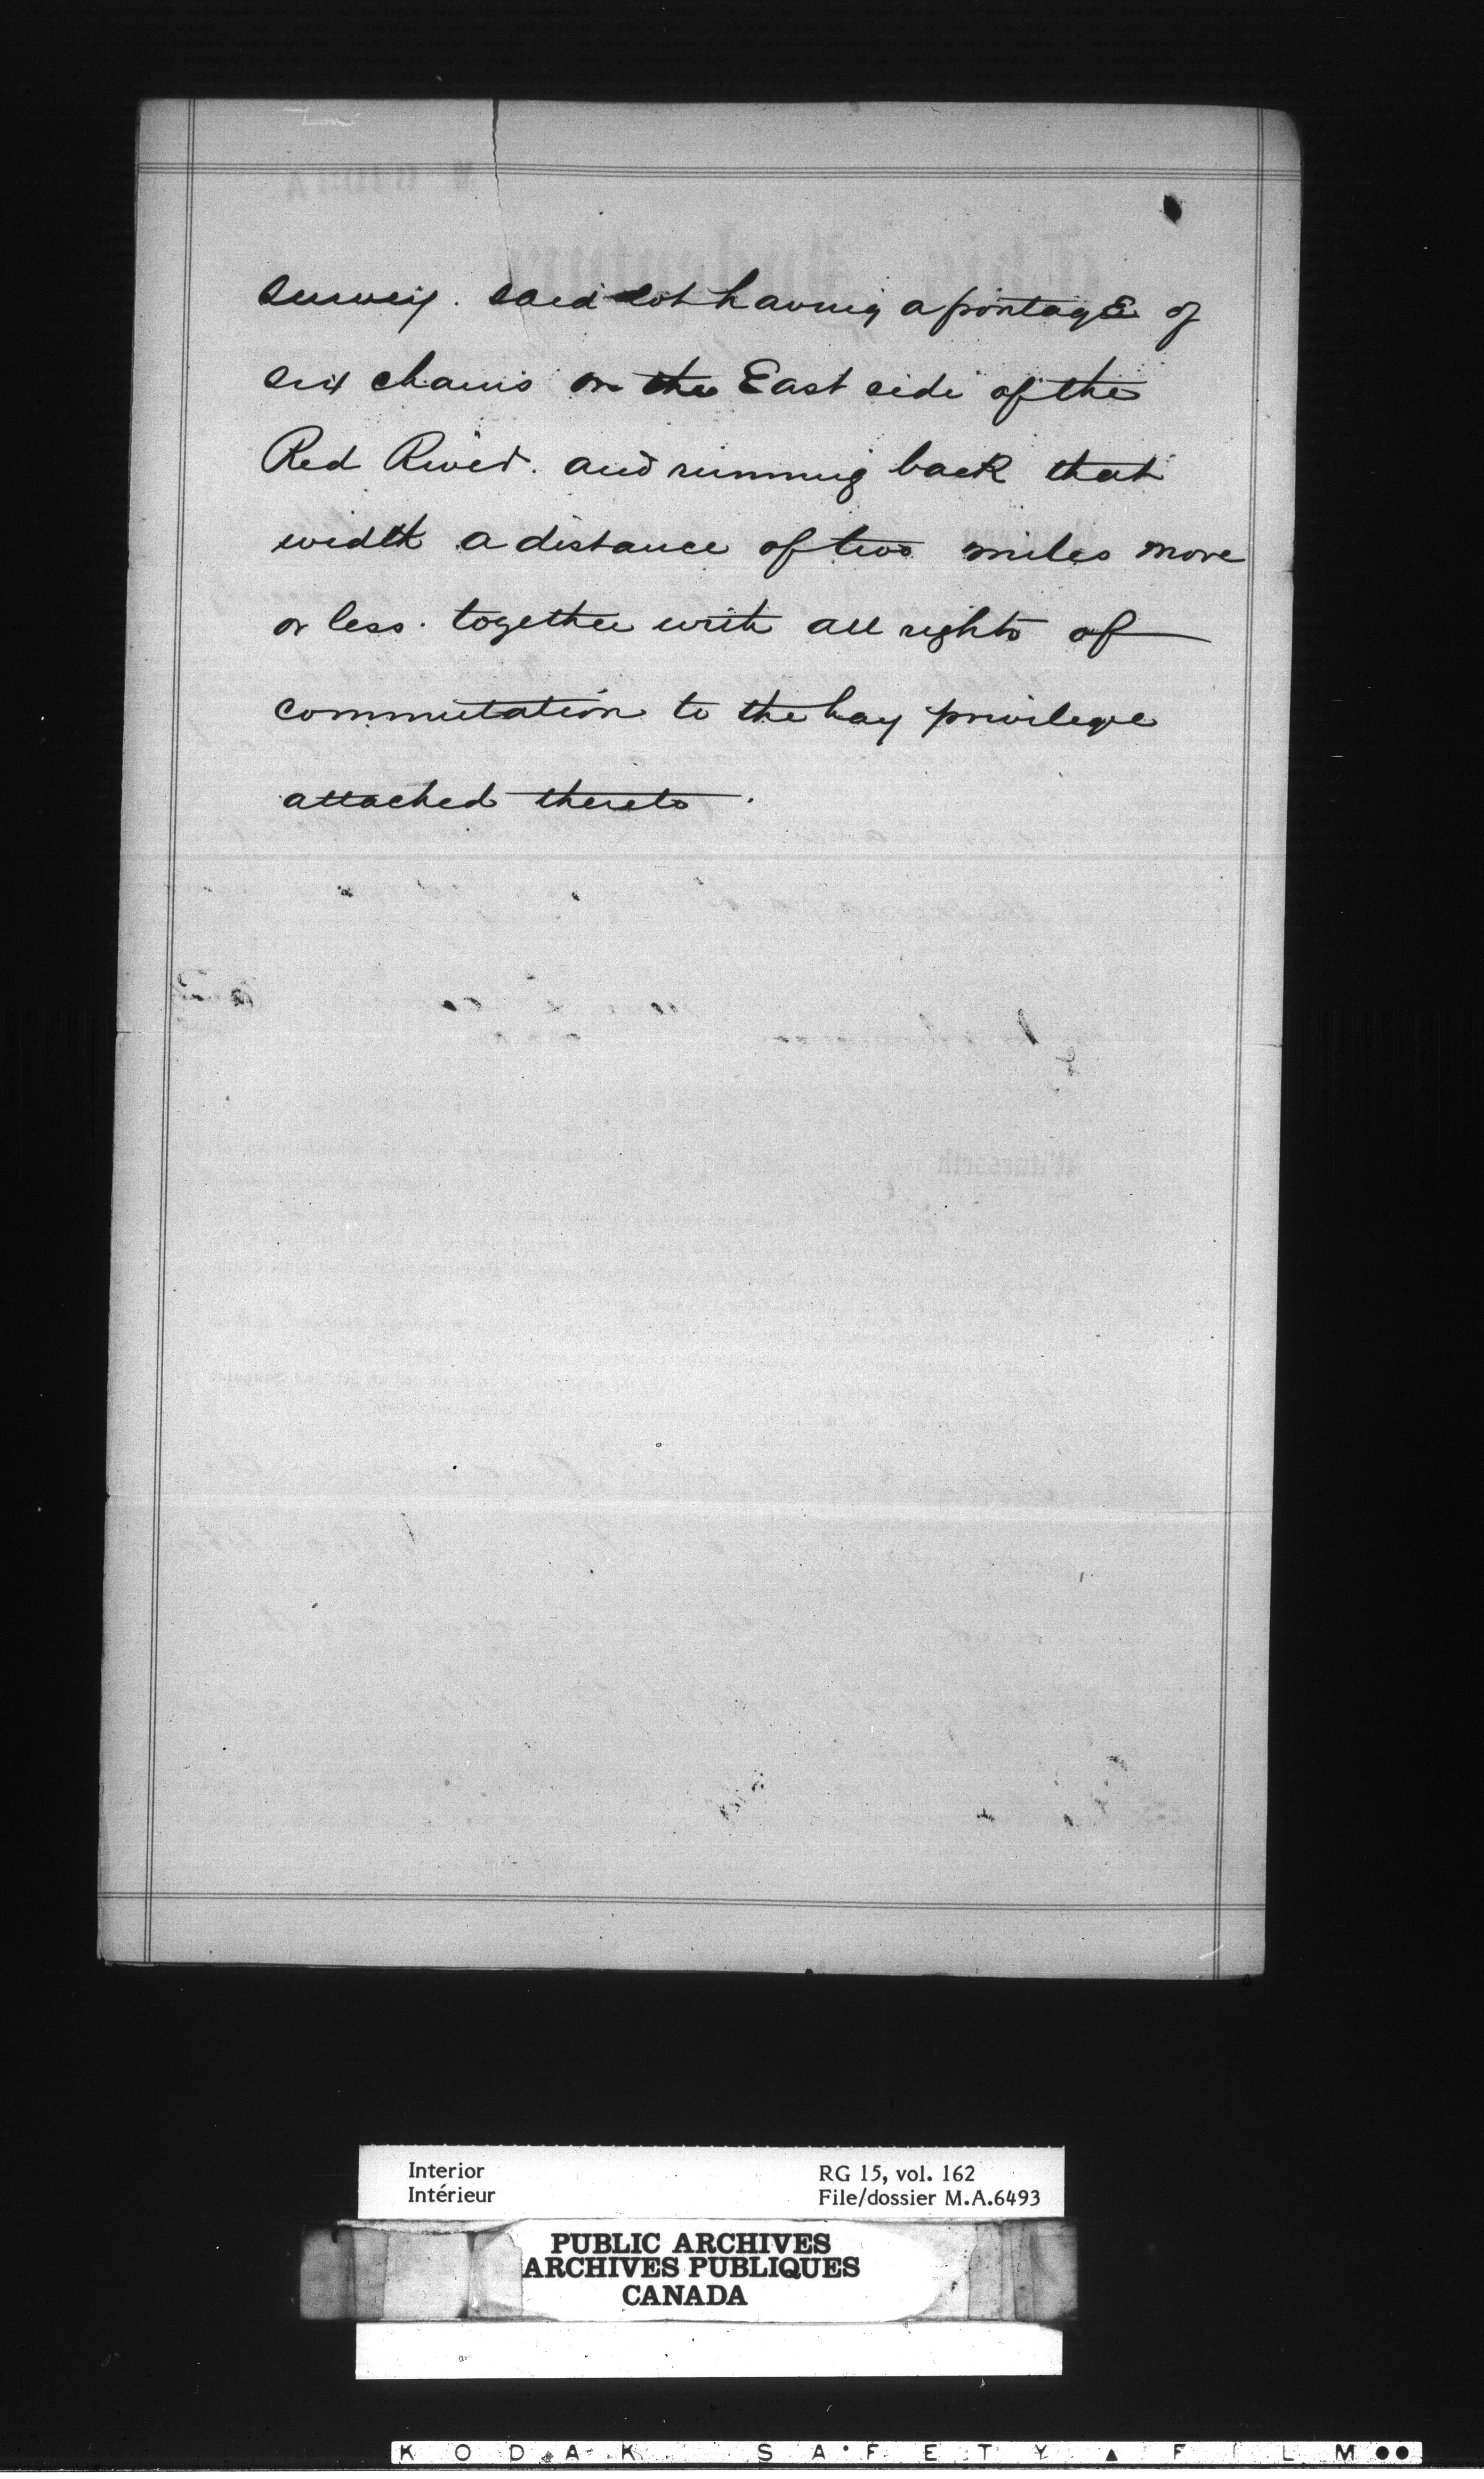 survey. said lot having a frontage of
six chains on the East side of the
Red River. and running back that
width a distance of two miles more
or less. together with all rights of
commutation to the hay privilege
attached thereto.
Interior
Intérieur
RG 15, vol. 162
File/dossier M.A.6493
PUBLIC ARCHIVES
ARCHIVES PUBLIQUES
CANADA
KODAK SAFETY ▲ FILM ●●